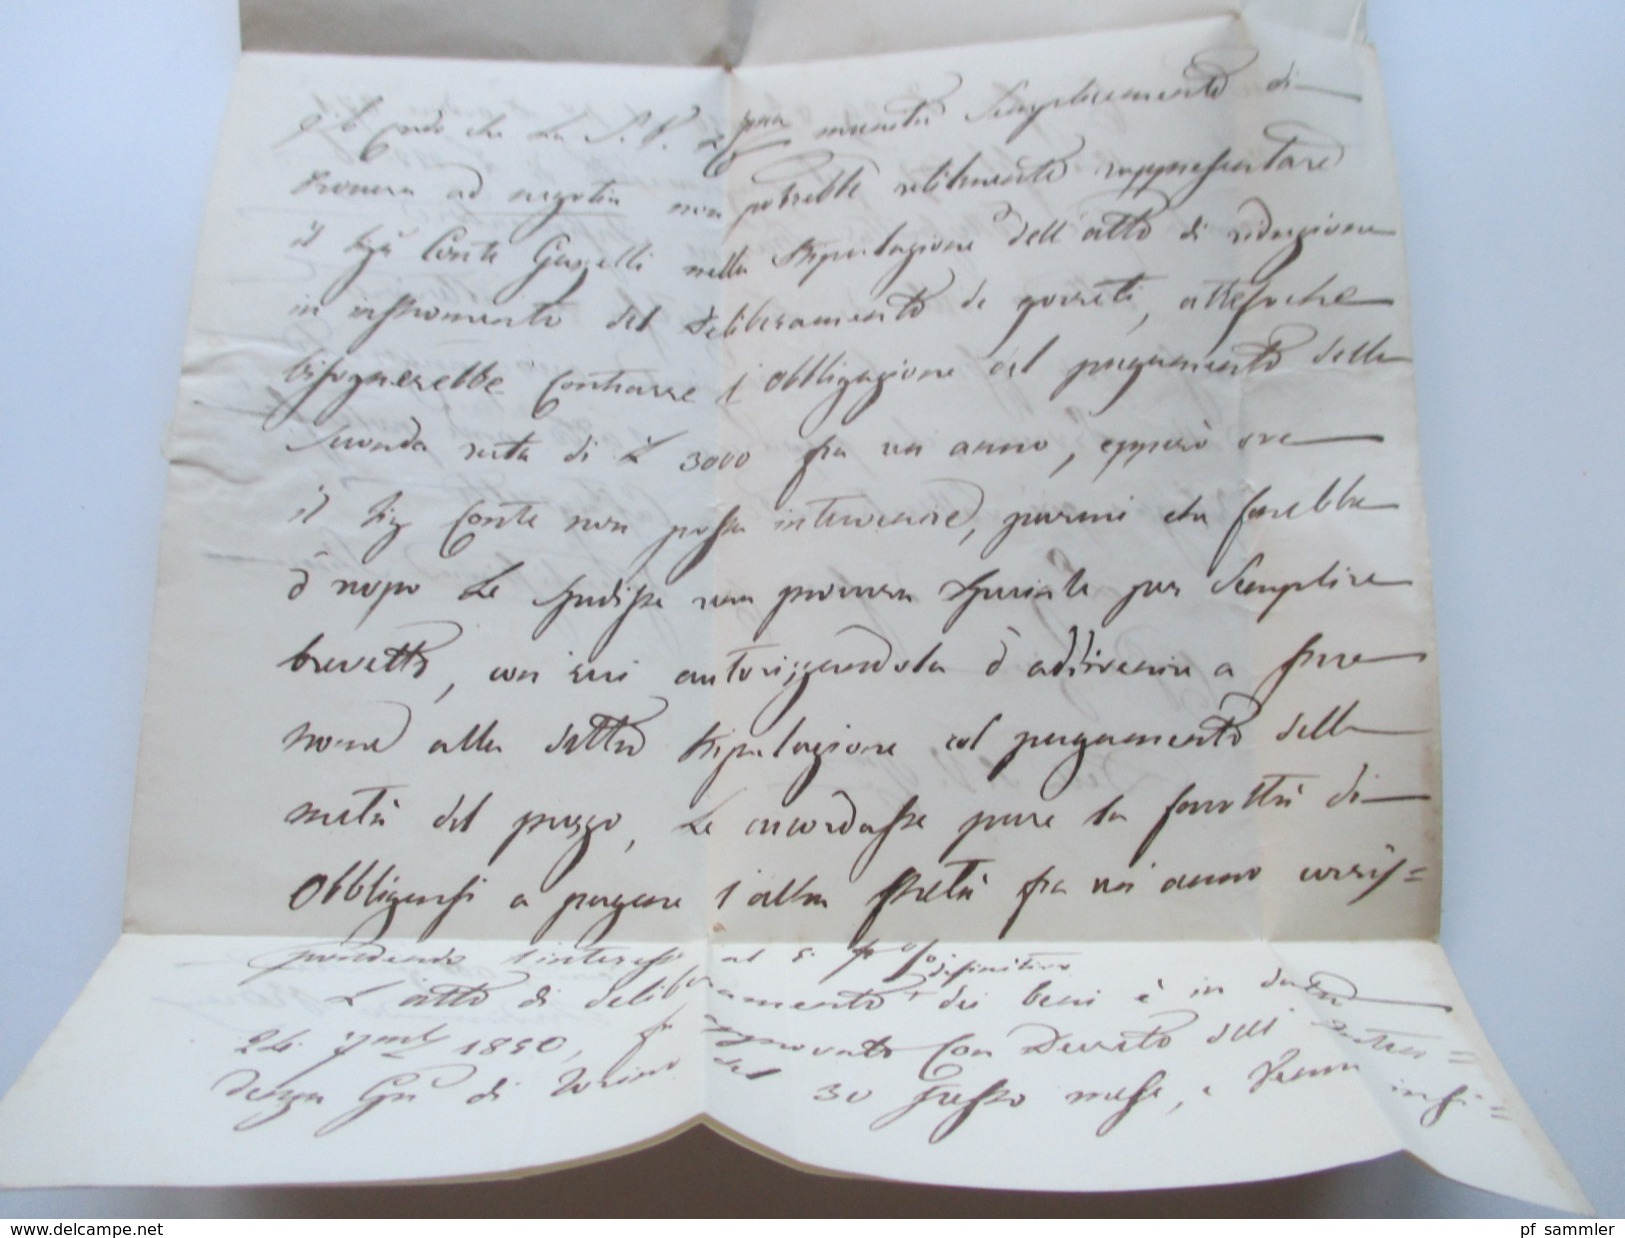 credo che La S. V. munita Semplicemente di
Procura ad negotia non potrebbe utilmente rappresentare
il Sigr Conte Gazzelli nella Stipulazione dell'atto di riduzione
in instromento del deliberamento de' poveri, attesoche
bisognerebbe Contrarre l'obbligazione del pagamento della
Seconda rata di L 3000 fra un anno, epperò ove
il Sig Conte non possa intervenire, parmi che sarebbe
d'uopo Le Spedisse una procura Speciale per Semplice
brevetto, con cui autorizzandola d'addivenire a suo
nome alla detta Stipulazione ed pagamento della
metà del prezzo, Le accordasse pure la facoltà di
Obbligarsi a pagare l'altra metà fra un anno corris=
pondendo l'interesse al 5. p % definitivo
L'atto di deliberamento dei beni è in data
24. 7mbre 1850, fu approvato Con Decreto dell' Inten=
denza Gle di Torino del 30 Stesso mese, e venne insi=
delcampe.net
pf_sammler